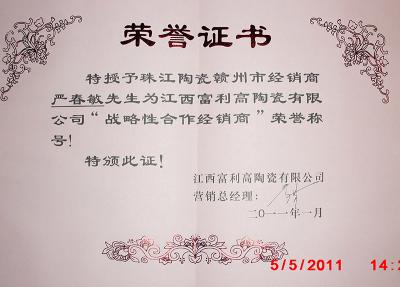 荣誉证书
特授予珠江陶瓷赣州市经销商
严春敏先生为江西富利高陶瓷有限
公司“战略性合作经销商”荣誉称
号!
特颁此证!
江西富利高陶瓷有限公司
营销总经理:
二〇一一年一月
5/5/2011 14:2